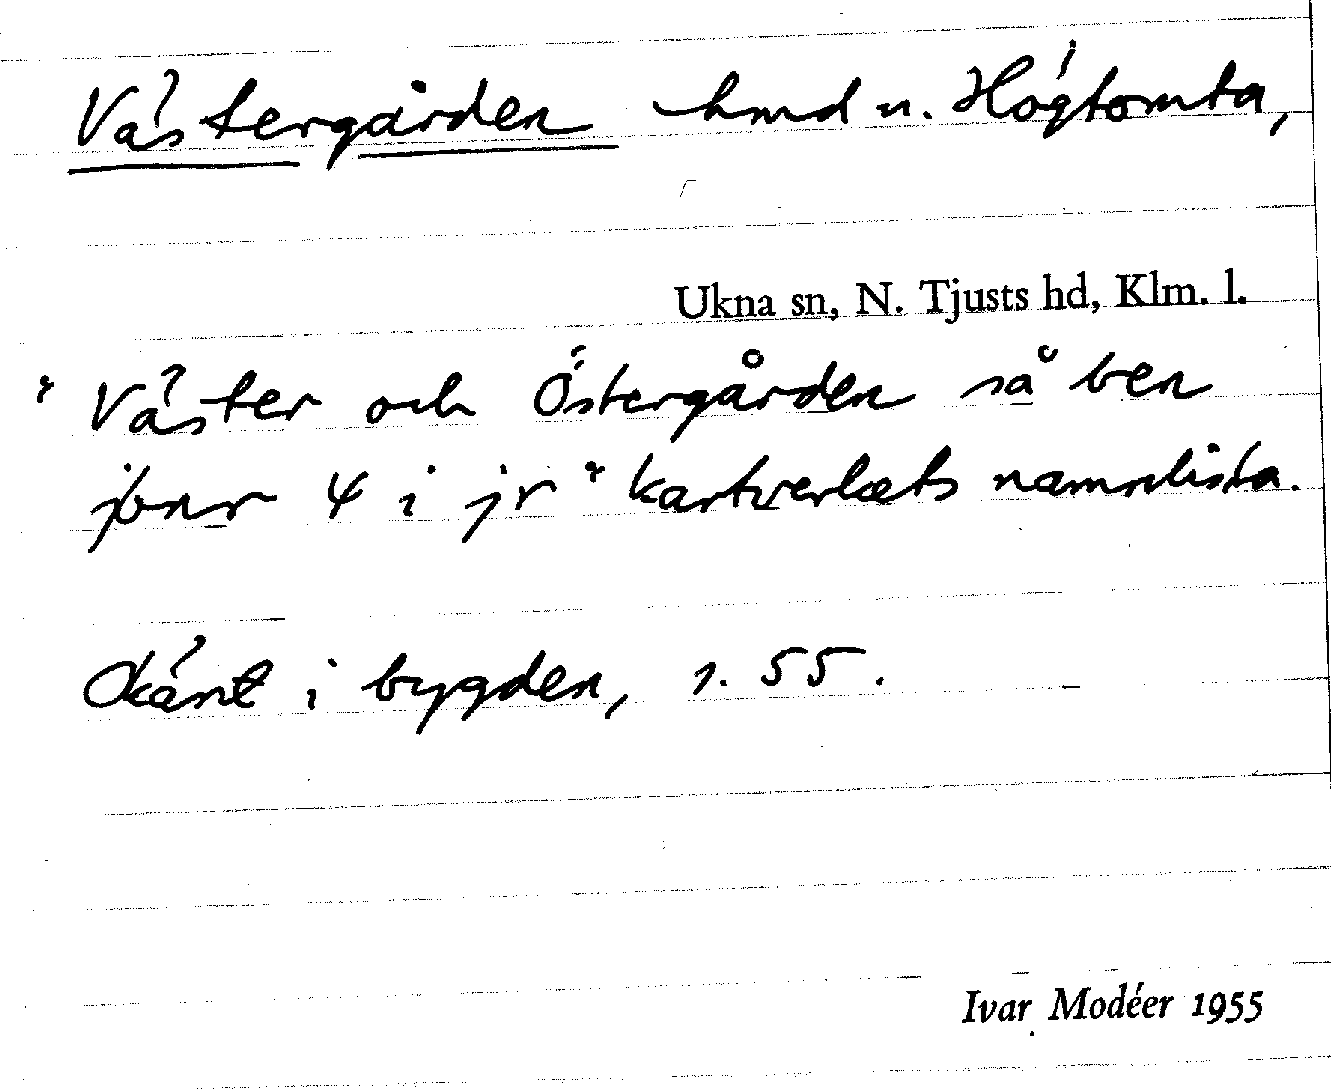 Västergården hmd u. Högtomta,
Ukna sn, N. Tjusts hd, Klm. l.
"Väster och Östergården så ben
jb nr 4 i jr" kartverkets namnlista.
Okänt i bygden, s. 55.
Ivar Modéer 1955